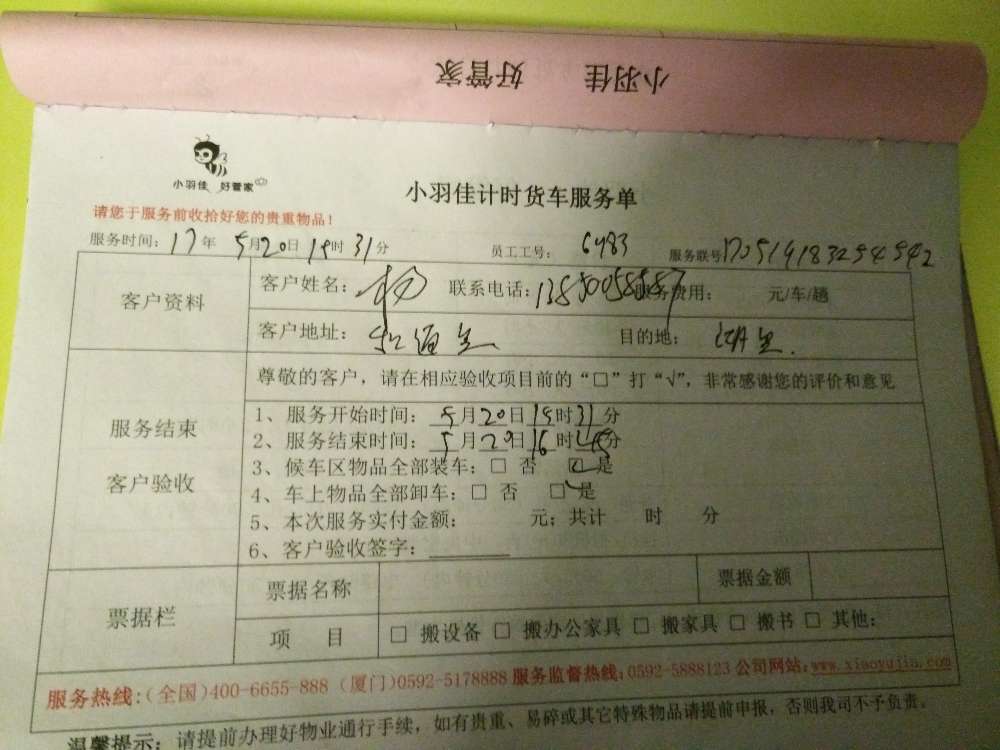 小羽佳 好管家
小羽佳 好管家
小羽佳计时货车服务单
请您于服务前收拾好您的贵重物品！
服务时间：17年 5月20日 15时31分 员工工号：6483 服务联号
客户资料 客户姓名：杨 联系电话： 服务费用： 元/车/趟
客户地址： 目的地：湖里.
尊敬的客户，请在相应验收项目前的“□”打“√”，非常感谢您的评价和意见
服务结束 客户验收
1、服务开始时间：5月20日15时31分
2、服务结束时间：5月20日16时45分
3、候车区物品全部装车：□ 否 ☑ 是
4、车上物品全部卸车：□ 否 ☑ 是
5、本次服务实付金额： 元；共计 时 分
6、客户验收签字：
票据栏 票据名称 票据金额
项 目 □ 搬设备 □ 搬办公家具 □ 搬家具 □ 搬书 □ 其他：
服务热线：(全国)400-6655-888 (厦门)0592-5178888 服务监督热线：0592-5888123 公司网站：www.xiaoyujia.com
温馨提示：请提前办理好物业通行手续，如有贵重、易碎或其它特殊物品请提前申报，否则我司不予负责。